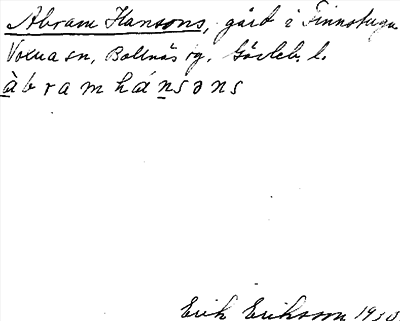 Abram Hansons, gård i Finnstuga
Voxna sn, Bollnäs tg. Gävleb. l.
àbramhánsəns
Erik Eriksson 1930.